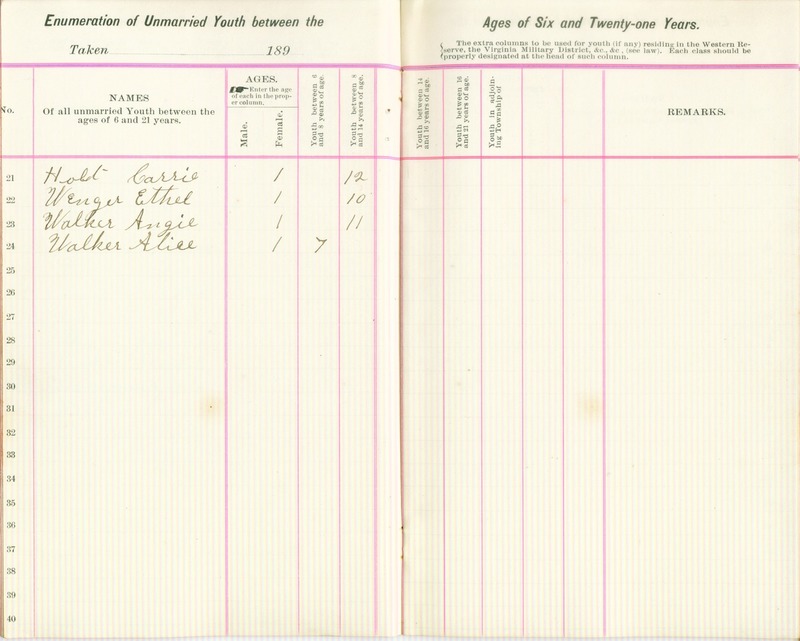 Enumeration of Unmarried Youth between the
Taken 189
No.
NAMES
Of all unmarried Youth between the
ages of 6 and 21 years.
AGES.
Enter the age
of each in the prop-
er column.
Male.
Female.
Youth between 6
and 8 years of age.
Youth between 8
and 14 years of age.
21 Holt Carrie 1 12
22 Wenger Ethel 1 10
23 Walker Angie 1 11
24 Walker Alice 1 7
25
26
27
28
29
30
31
32
33
34
35
36
37
38
39
40
Ages of Six and Twenty-one Years.
The extra columns to be used for youth (if any) residing in the Western Re-
serve, the Virginia Military District, &c., &c., (see law). Each class should be
properly designated at the head of such column.
Youth between 14
and 16 years of age.
Youth between 16
and 21 years of age.
Youth in adjoin-
ing Township of
REMARKS.